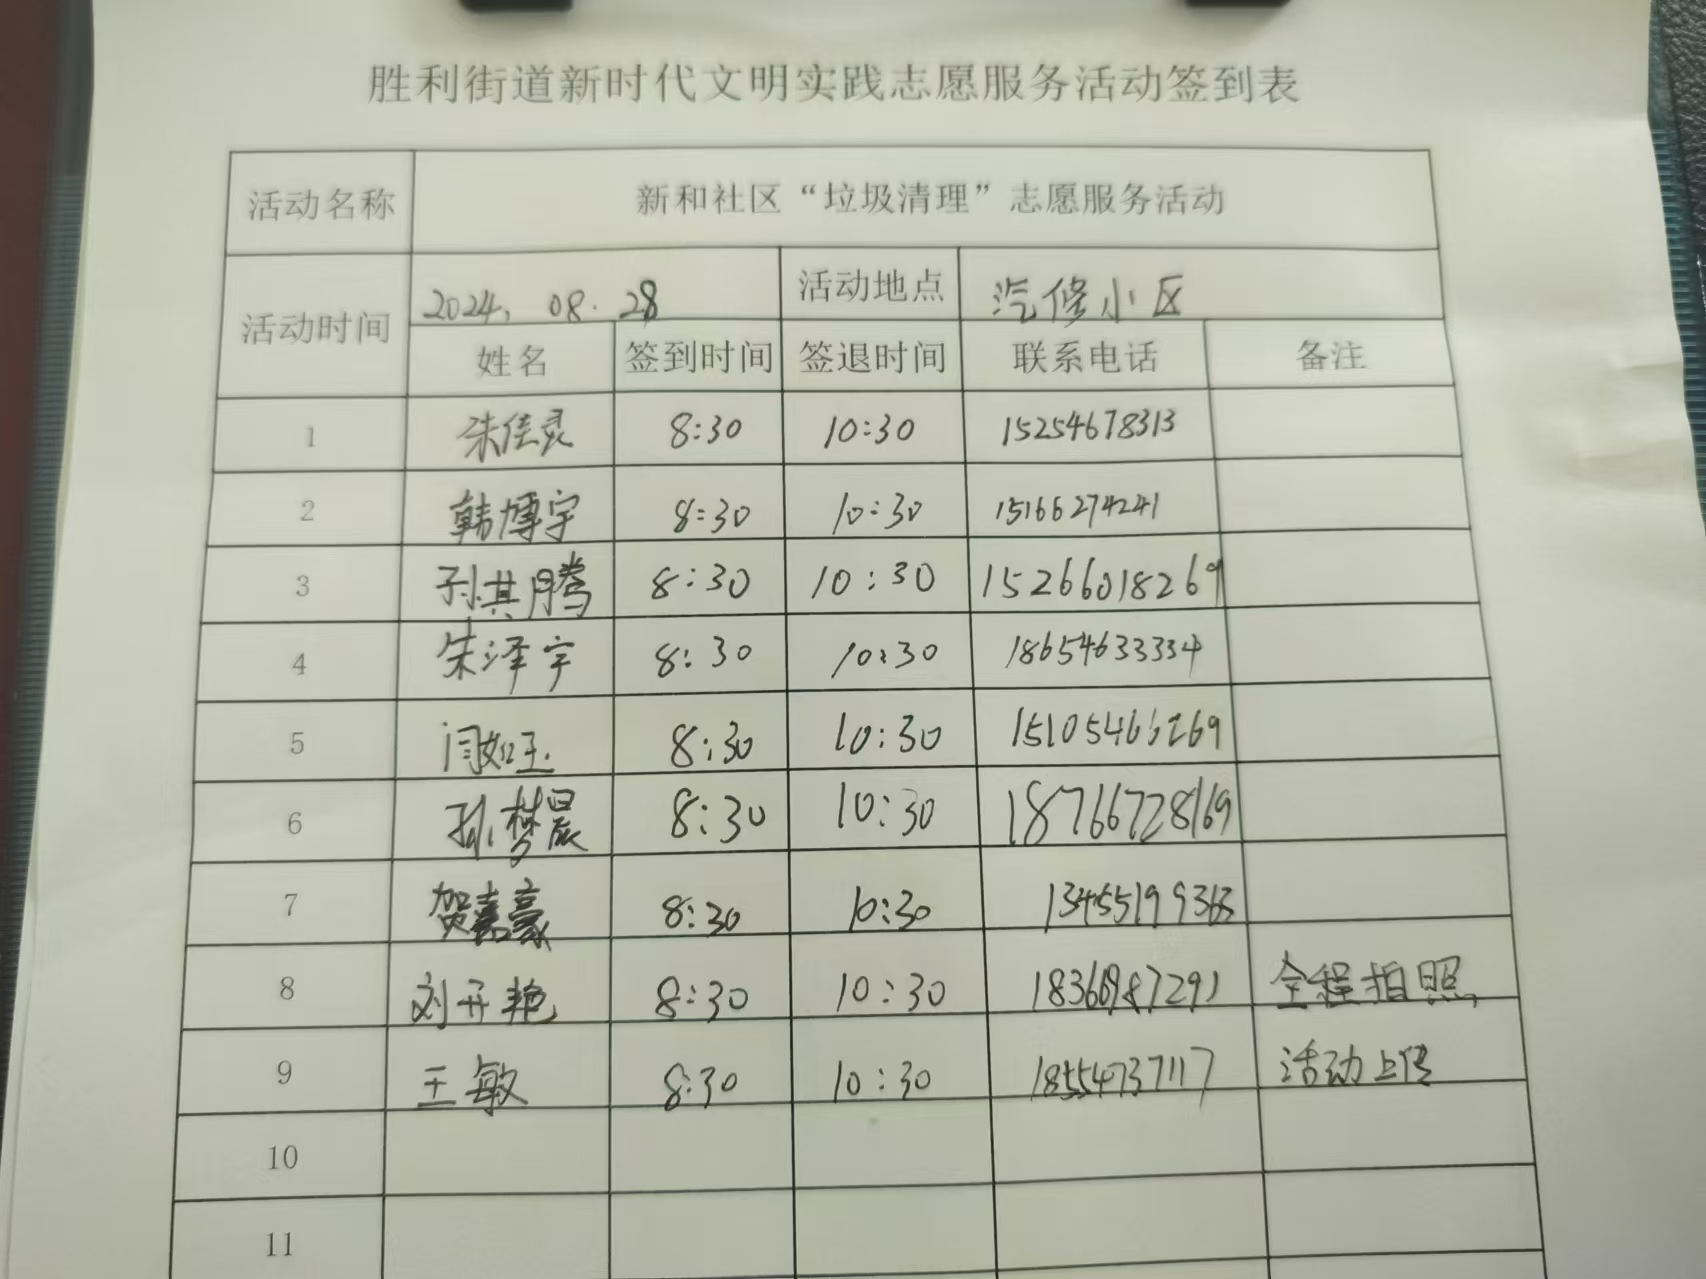 胜利街道新时代文明实践志愿服务活动签到表
活动名称 新和社区“垃圾清理”志愿服务活动
活动时间 2024. 08. 28 活动地点 汽修小区
姓名 签到时间 签退时间 联系电话 备注
1 朱佳灵 8:30 10:30 15254678313
2 韩博宇 8:30 10:30 15166274241
3 孙其腾 8:30 10:30 15266018269
4 朱泽宇 8:30 10:30 18654633334
5 闫如玉 8:30 10:30
6 孙梦晨 8:30 10:30 18766728169
7 贺嘉豪 8:30 10:30
8 刘开艳 8:30 10:30 全程拍照
9 王敏 8:30 10:30 18554737117 活动上传
10
11